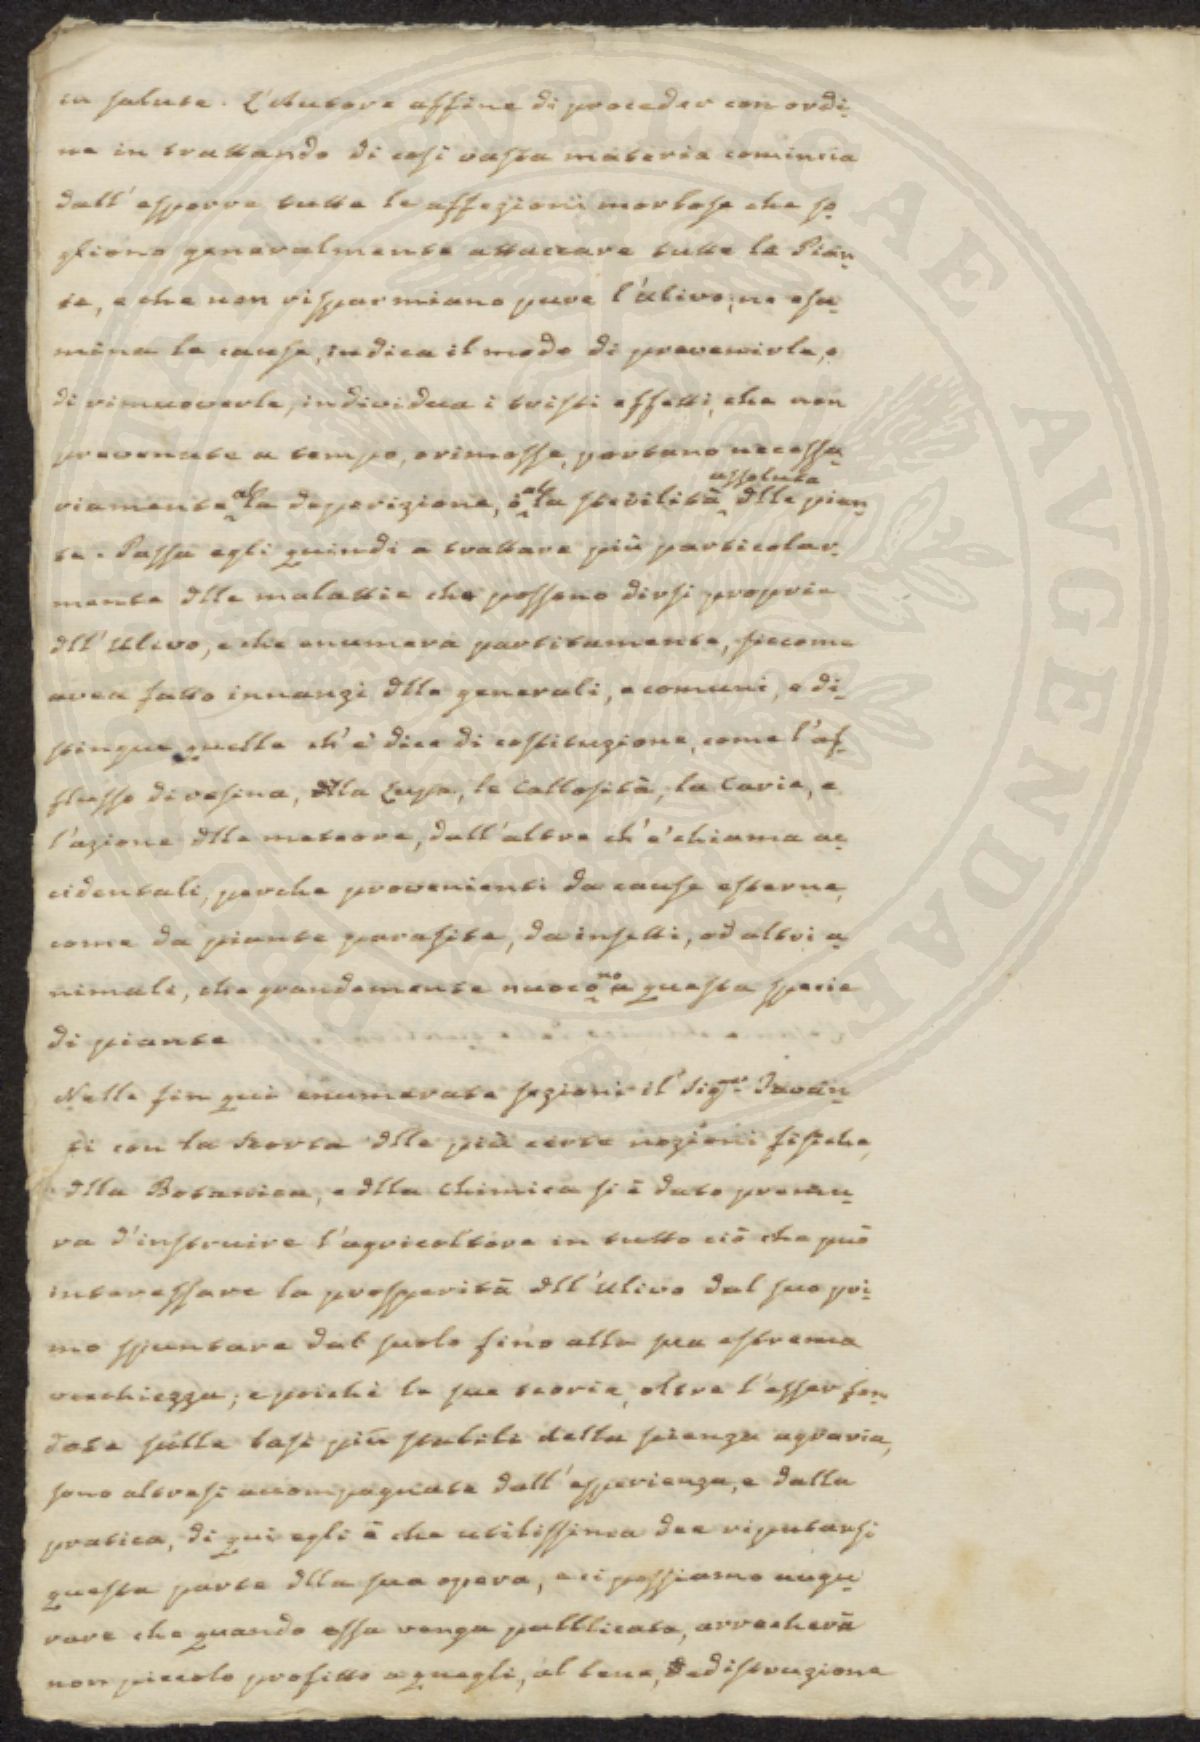 in salute. L'Autore affine di proceder con ordi-
ne in trattando di così vasta materia comincia
dall'esporre tutte le affezioni morbose che so-
gliono generalmente attaccare tutte le Pian-
te, e che non risparmiano pure l'ulivo, ne esa-
mina le cause, indica il modo di prevenirle, e
di rimuoverle, individua i tristi effetti, che non
prevenute a tempo, o rimosse, portano necessa-
riamente alla deperizione, o alla sterilità assoluta dlle pian-
te. Passa egli quindi a trattare più particolar-
mente dlle malattie che possono dirsi proprie
dll'Ulivo, e che enumera partitamente, siccome
avea fatto innanzi dlle generali, e comuni, e di-
stingue quelle ch'e' dice di costituzione, come l'af-
flusso di resina, dlla Lupa, le Callosità, la Carie, e
l'azione dlle meteore, dall'altre ch'e' chiama ac-
cidentali, perche provenienti da cause esterne,
come da piante parasite, da insetti, od altri a-
nimali, che grandemente nuocono a questa specie
di piante
Nelle fin qui enumerate sezioni il Sigr Tavan-
ti con la scorta dlle più certe nozioni fisiche,
dlla Botanica, e dlla Chimica si è dato premu-
ra d'instruire l'agricoltore in tutto ciò che può
interessare la prosperità dll'Ulivo dal suo pri-
mo spuntare dal suolo fino alla sua estrema
vecchiezza; e poichè le sue teorie, oltre l'esser fon-
date sulle basi più stabili della scienza agraria,
sono altresi accompagnate dall'esperienza, e dalla
pratica, di qui egli è che utilissima dee riputarsi
questa parte dlla sua opera, e ci possiamo augu-
rare che quando essa venga pubblicata, arrecherà
non piccolo profitto a quegli, al bene, ed istruzione
PROSPERITATI PVBLICAE AVGENDAE